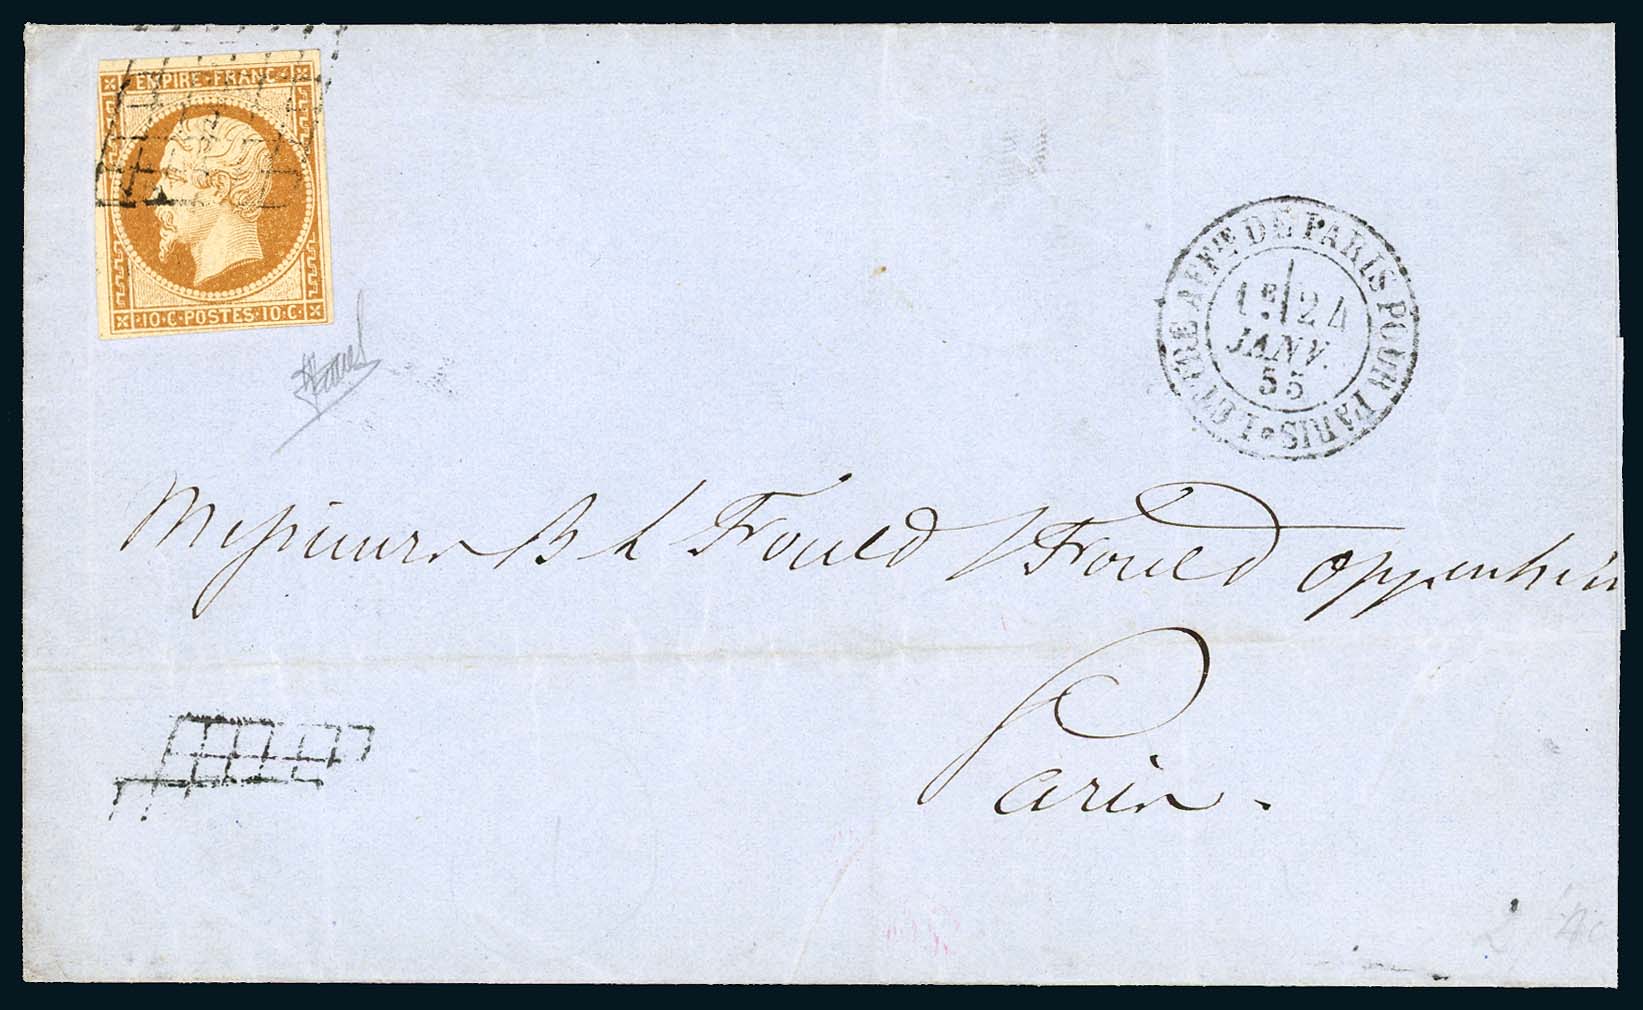 EMPIRE·FRANC·
·10·C·POSTES·10·C·
LETTRE AFFIE DE PARIS POUR PARIS
1E 24
JANV.
55
Messieurs B L Fould & Fould Oppenheim
Paris.